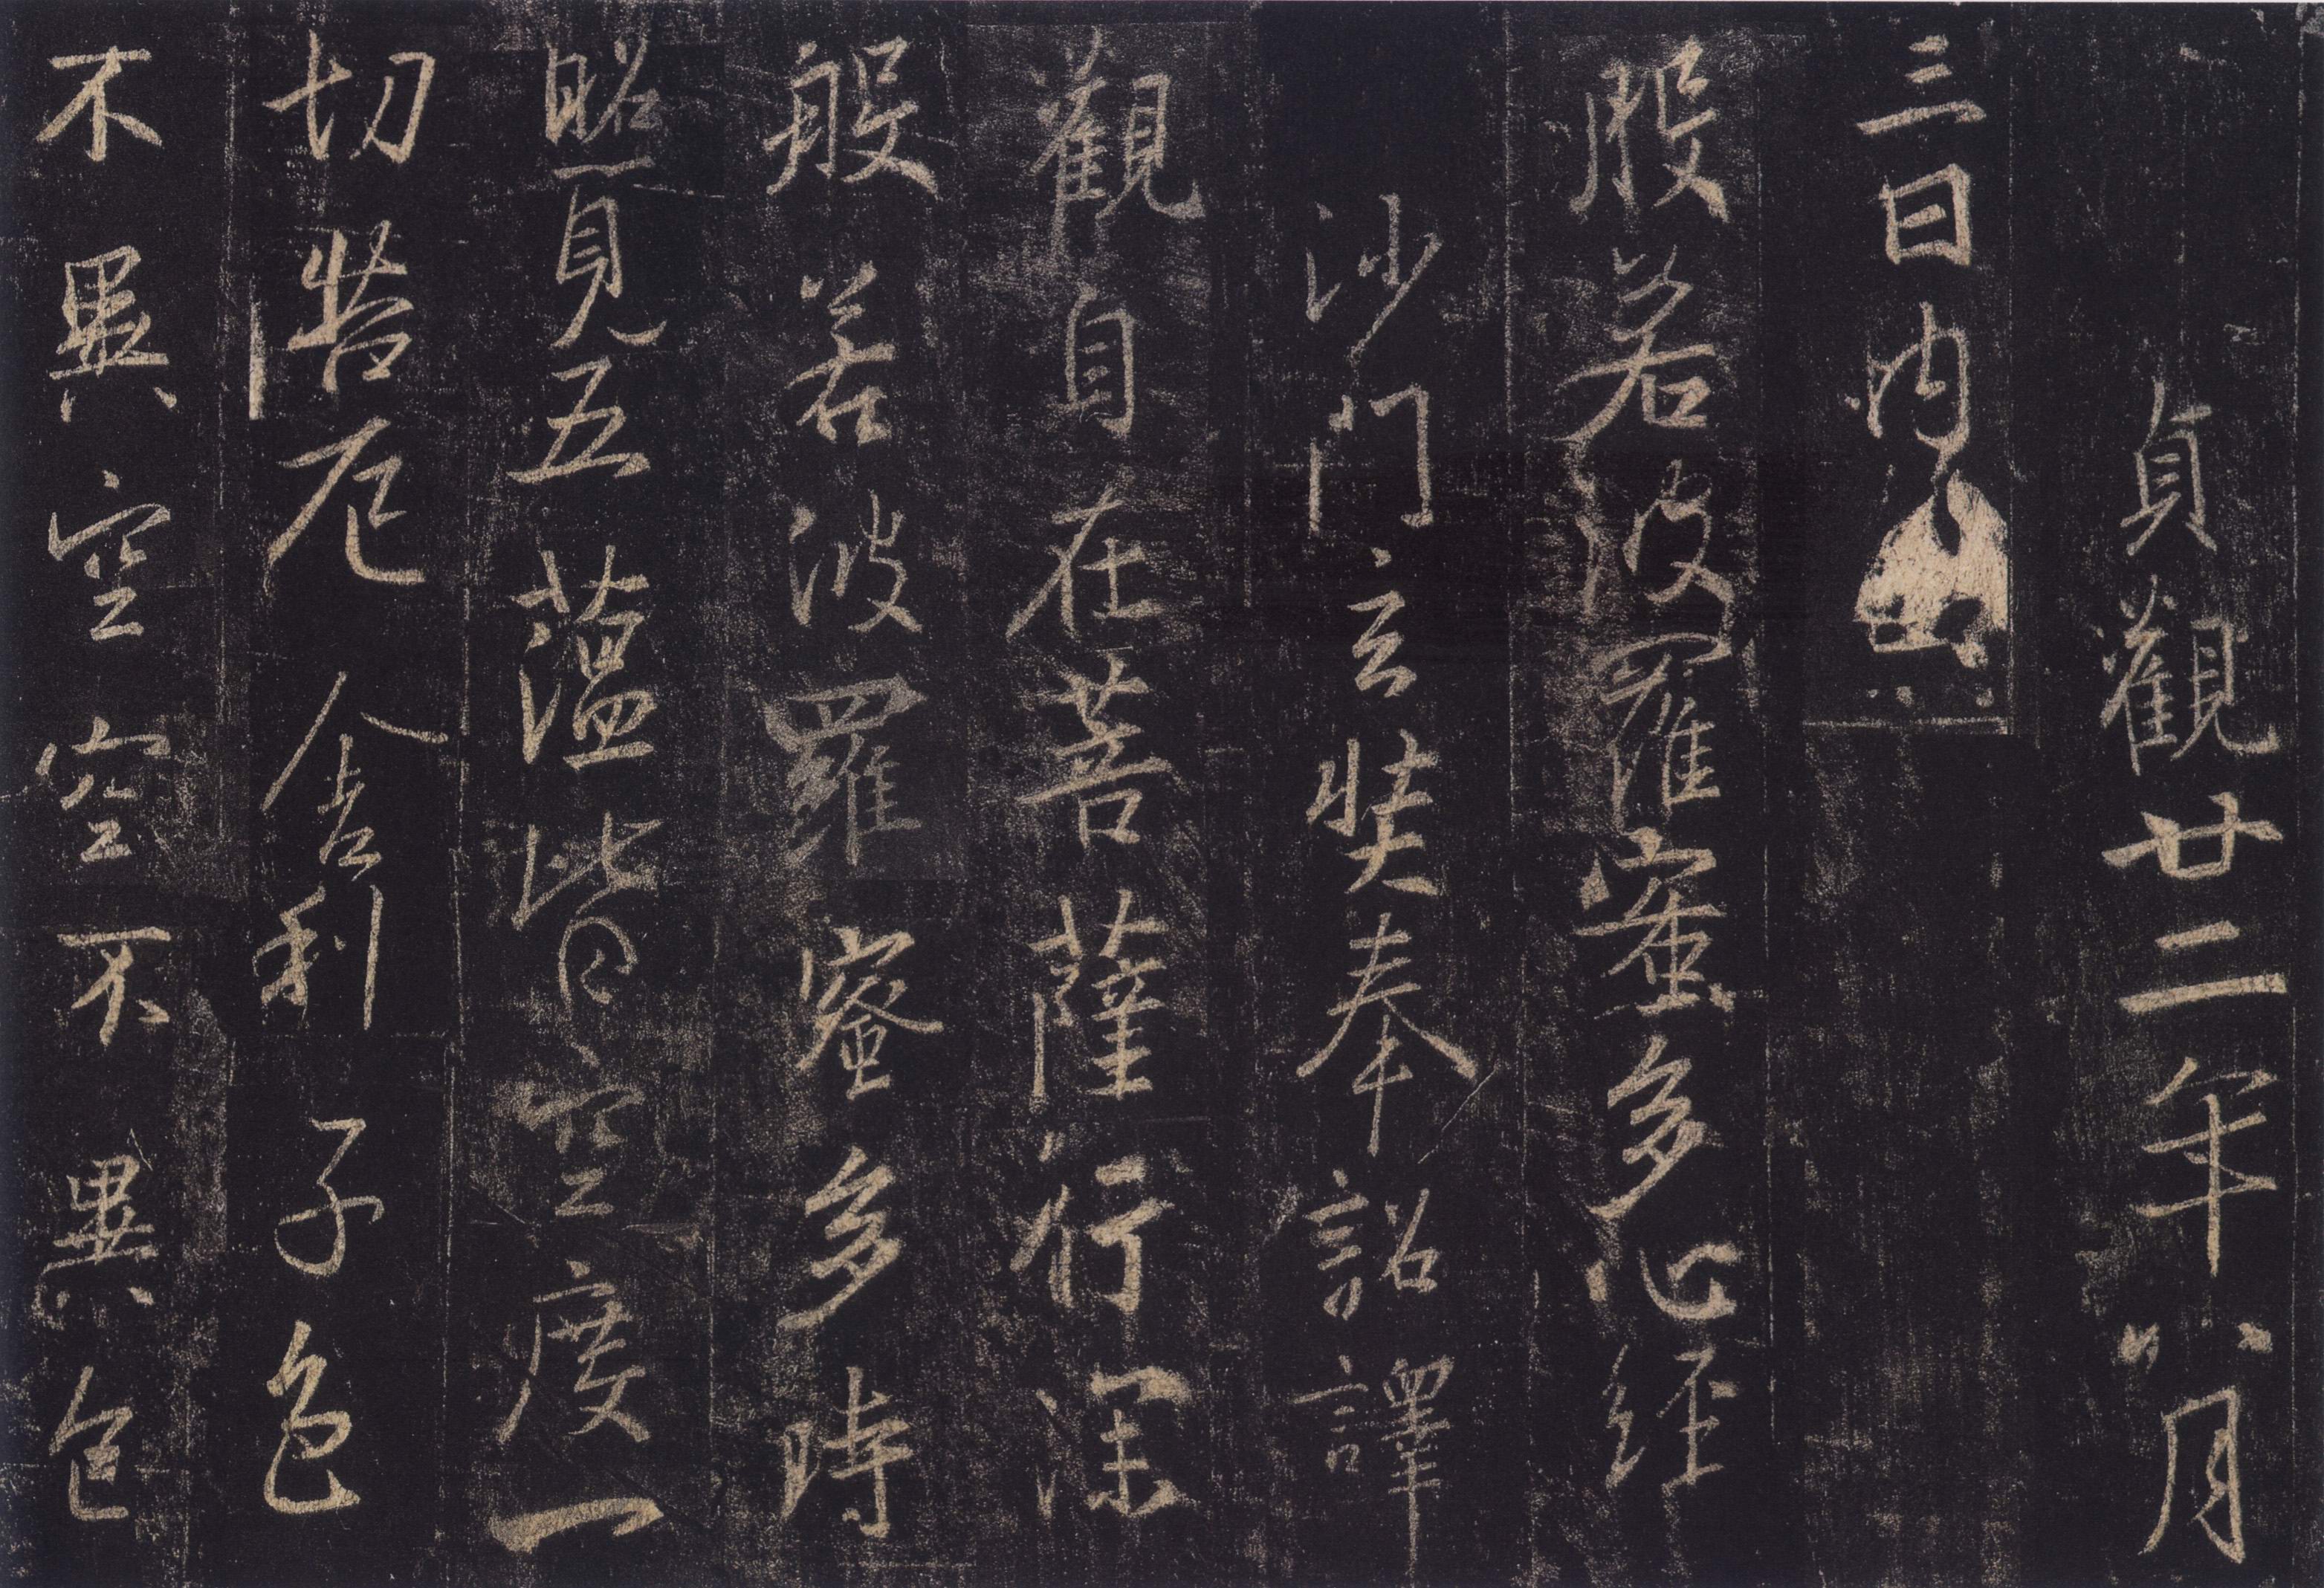 貞觀廿二年八月
三日內出
般若波羅蜜多心經
沙門玄奘奉詔譯
觀自在菩薩行深
般若波羅蜜多時
照見五蘊皆空度一
切苦厄舍利子色
不異空空不異色